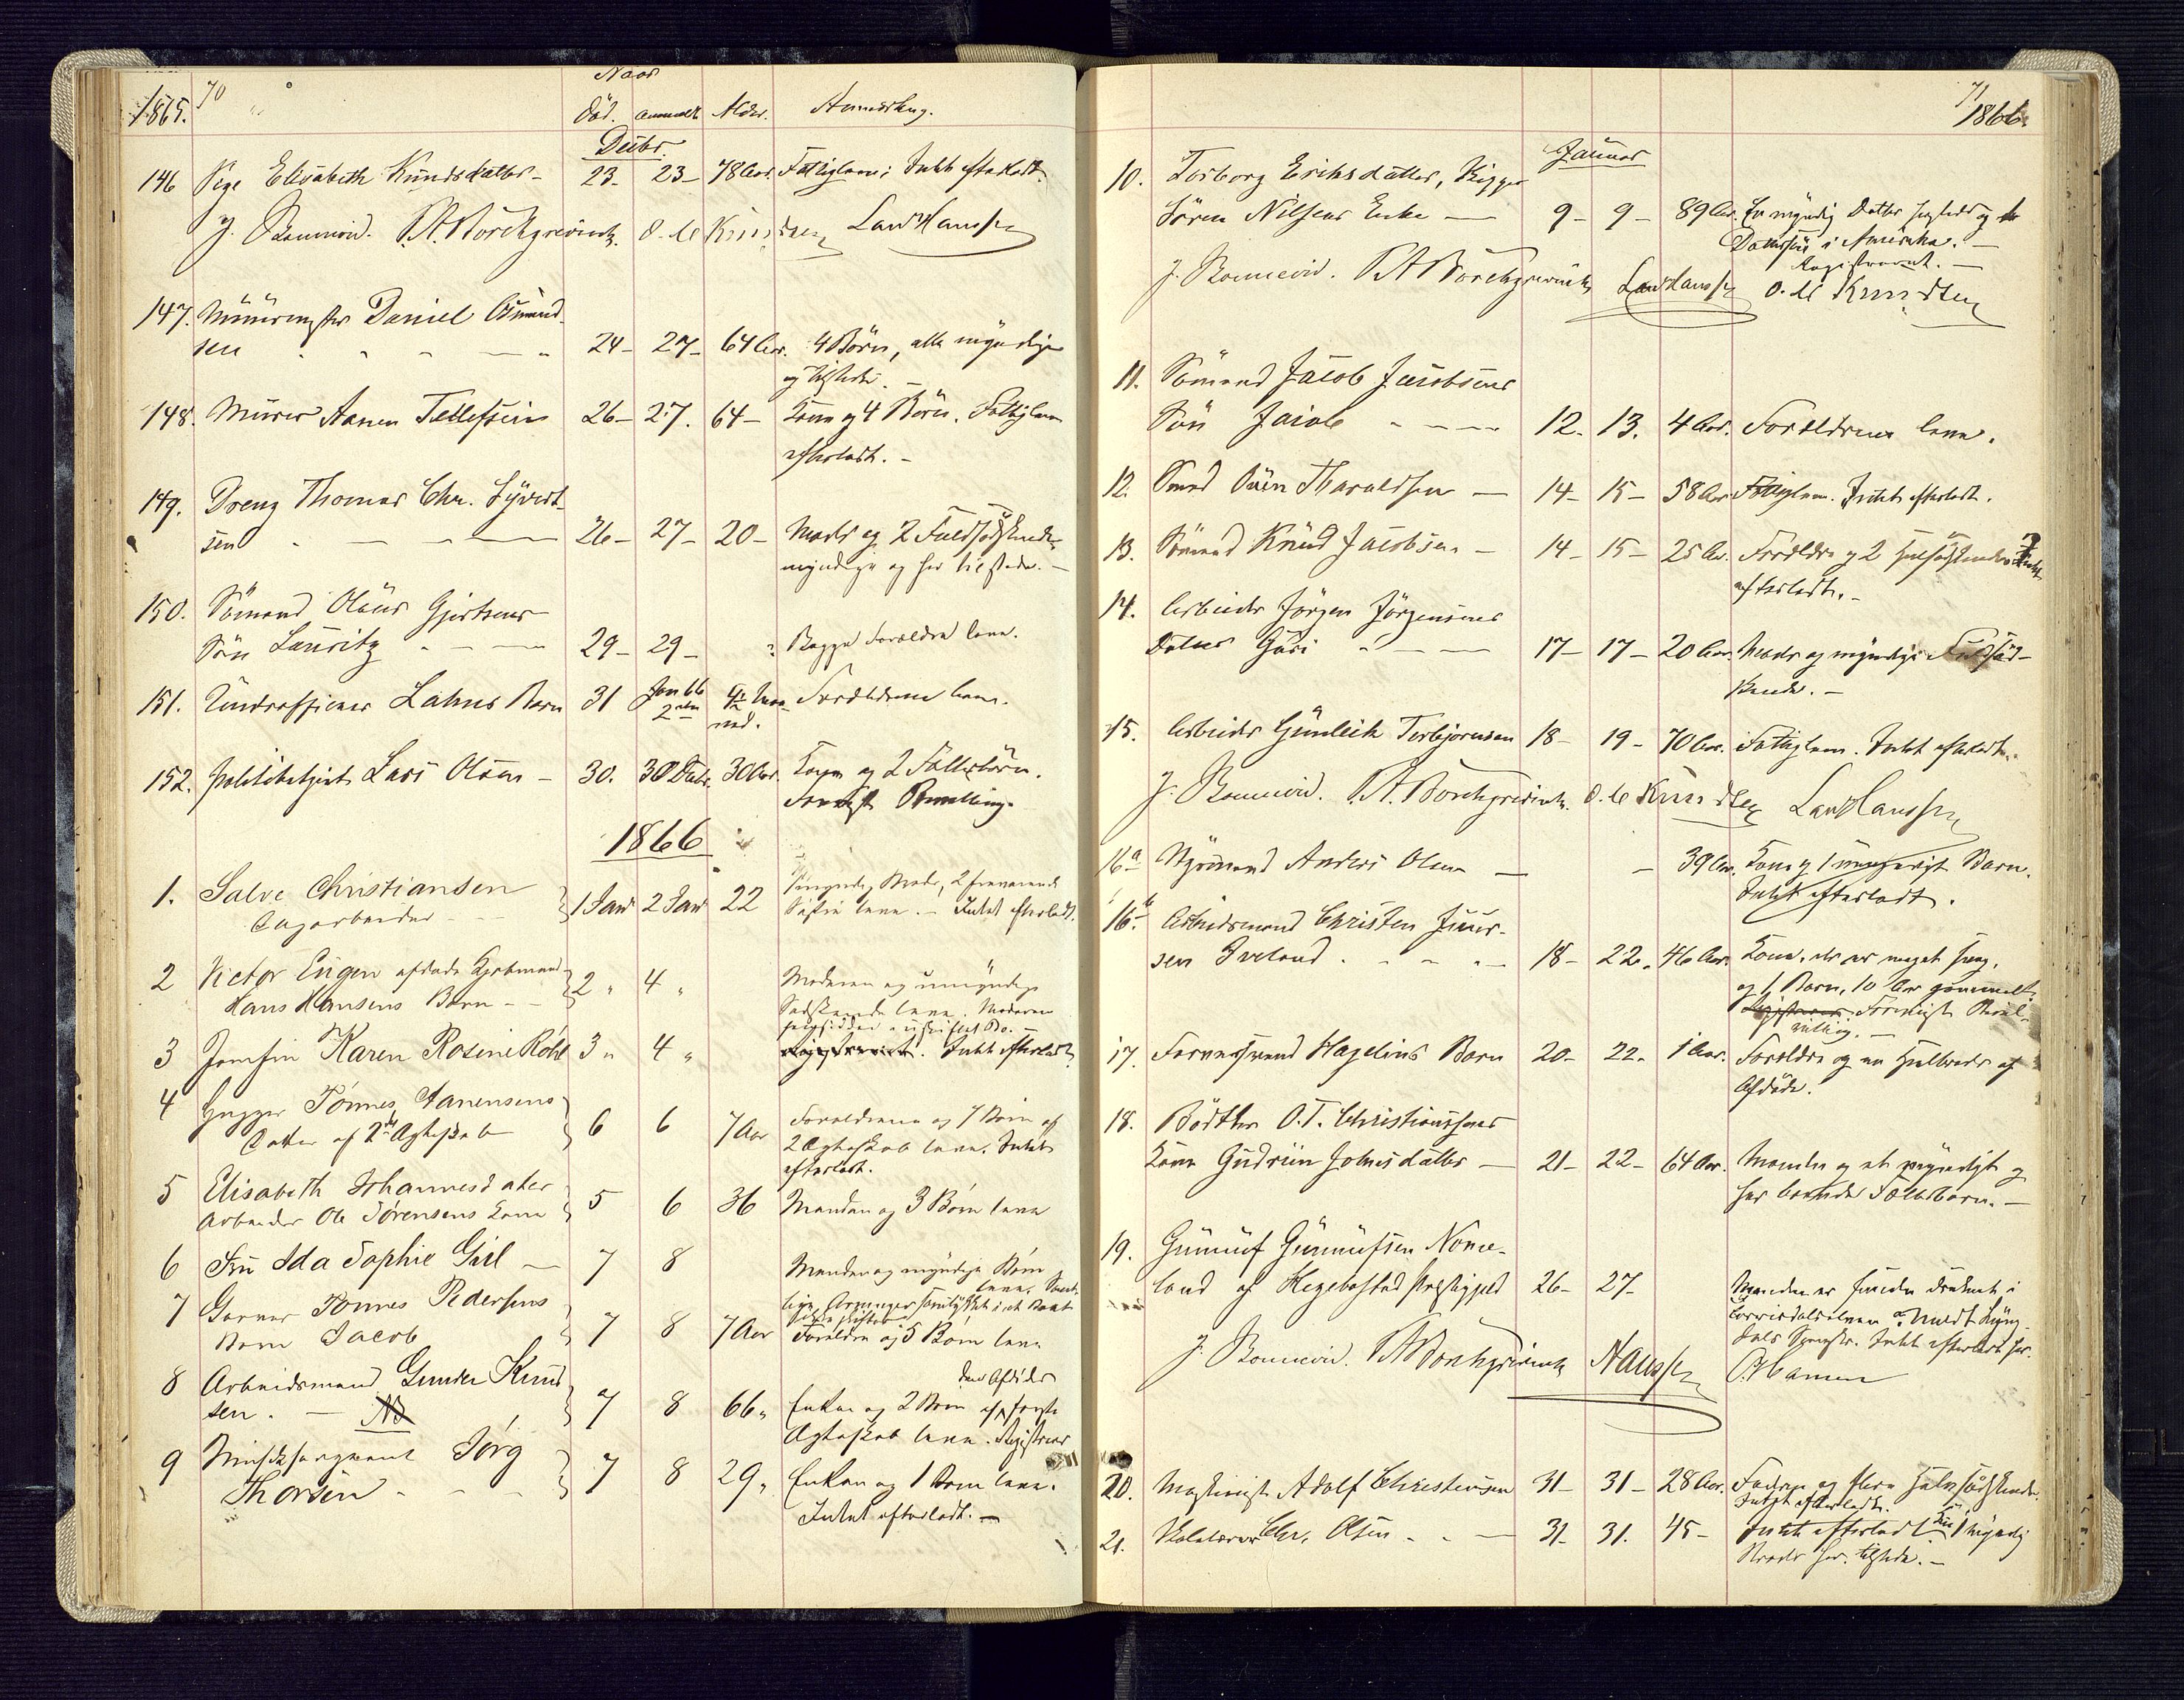 70
1865.
Naar
död. anmeldt Alder. Anmærkning.
Decbr.
146 Pige Elisabeth Knudsdatter - 23- 23- 78 Aar. Fattiglem; Intet efterladt.
J. Bonnevie. P.A. Borchgrevink. O. C. Knudsen Lau Hanssen
147. Muurmester Daniel Osmund-
sen 24- 27- 64 Aar. 4 Börn, alle myndige
og tilstede. -
148. Murer Aanen Tellefsen 26- 27. 64- Kone og 4 Börn. Fattiglem
efterladt. -
149. Dreng Thomas Chr. Syvert-
sen 26- 27- 20- Moder og 2 Fuldsödskende
myndige og her tilstede. -
150. Sömand Olaus Gjertsens
Sön Lauritz 29- 29- Begge Forældre leve.
151. Underofficer Lahns Barn 31 Jan 66 2den 4½ Maa-
ned. Forældrene leve.
152. Politibetjent Lars Olsen - 30. 30 Decbr. 30 Aar. Konen og 2 Fællesbörn.
Foreviist Bevilling.
1866
1. Salve Christiansen
Dagarbeider 1 Jan 2 Jan 22 Moder, 2 fraværende
Söstre leve. - Intet efterladt.
2 Victor Eugen afdøde Kjøbmand
Hans Hansens Barn 2 " 4 " Moderen og umyndige
Södskende leve. Moderen
hensidder i uskiftet Bo. -
3 Jomfru Karen Rosine Röhl 3 " 4 " Registreret. Intet efterladt
4 Tönnes Aanensens
Datter af 2det Ægteskab 6 6 7 Aar Forældrene og 7 Börn af
2 Ægteskab leve. Intet
efterladt.
5 Elisabeth Johannesdatter
Arbeider Ole Sörensens Kone 5 6 36 Manden og 3 Börn leve
6 Fru Ida Sophie Giil - 7 8 Manden og myndige Börn
leve.
7 Garver Tönnes Pedersens
Barn Jacob 7 8 7 Aar Forældre og 5 Börn leve
8 Arbeidsmand Gunder Knud
sen. - 7 8 66 " Enken og 2 Börn af den Afdödes förste
Ægteskab leve. Registreret
9 Musiksergeant Jörg
Thorsen 7 8 29 " Enken og 1 Barn leve.
Intet efterladt. -
71
1866.
Januar
10. Torborg Eriksdatter, Rigger
Sören Nilsens Enke - 9- 9- 89 Aar. En myndig Datter her tilstede og to
Dattersön i Amerika. -
Registreret. -
J. Bonnevie. P A Borchgrevink Lau Hanssen O. C. Knudsen
11. Sömand Jacob Jacobsens
Sön Jacob 12. 13. 4 Aar. Forældrene leve.
12. Smed Sven Tharaldsen - 14- 15- 58 Aar Fattiglem. Intet efterladt.
13. Sömand Knud Jacobsen - 14- 15- 25 Aar. Forældre og 2 Helsödskende. Intet
efterladt. -
14. Arbeider Jörgen Jörgensens
Datter Guri 17- 17- 20 Aar. Moder og myndige Fuldsöd-
skende. -
15. Arbeider Gunleik Torbjörnsen 18- 19- 70 Aar. Fattiglem. Intet efterladt.
J. Bonnevie. P.A. Borchgrevink. O. C. Knudsen Lau Hanssen
16a Styrmand Anders Olsen - - 39 Aar. Kone og 1 umyndigt Barn.
Intet efterladt.
16b Arbeidsmand Christen Juur-
sen Iveland 18- 22. 46 Aar. Kone, der er meget svag,
og 1 Barn, 10 Aar gammelt.
Registreret Foreviist Bevil-
ling. -
17. Farversvend Hagelins Barn 20- 22- 1 Aar. Forældre og en Helbroder af
Afdöde.
18. Bödker O. T. Christianssens
Kone Gudrun Johnsdatter - 21- 22- 64 Aar. Manden og et myndigt og
her boende Fællesbarn. -
19. Gunnuf Gunnufsen Nome-
land af Hegebostad Præstegjeld 26- 27- Manden er funden druknet i
Torrisdalselven
Intet efterladt her.
J. Bonnevie. P A Borchgrevink Hanssen
20. Maskinist Adolf Christensen 31- 31- 28 Aar. Fader og flere Halvsödskende.
Intet efterladt.
21. Skolelærer Chr. Olsen - 31- 31. 45- Intet efterladt. 1 myndig
Broder her tilstede. -